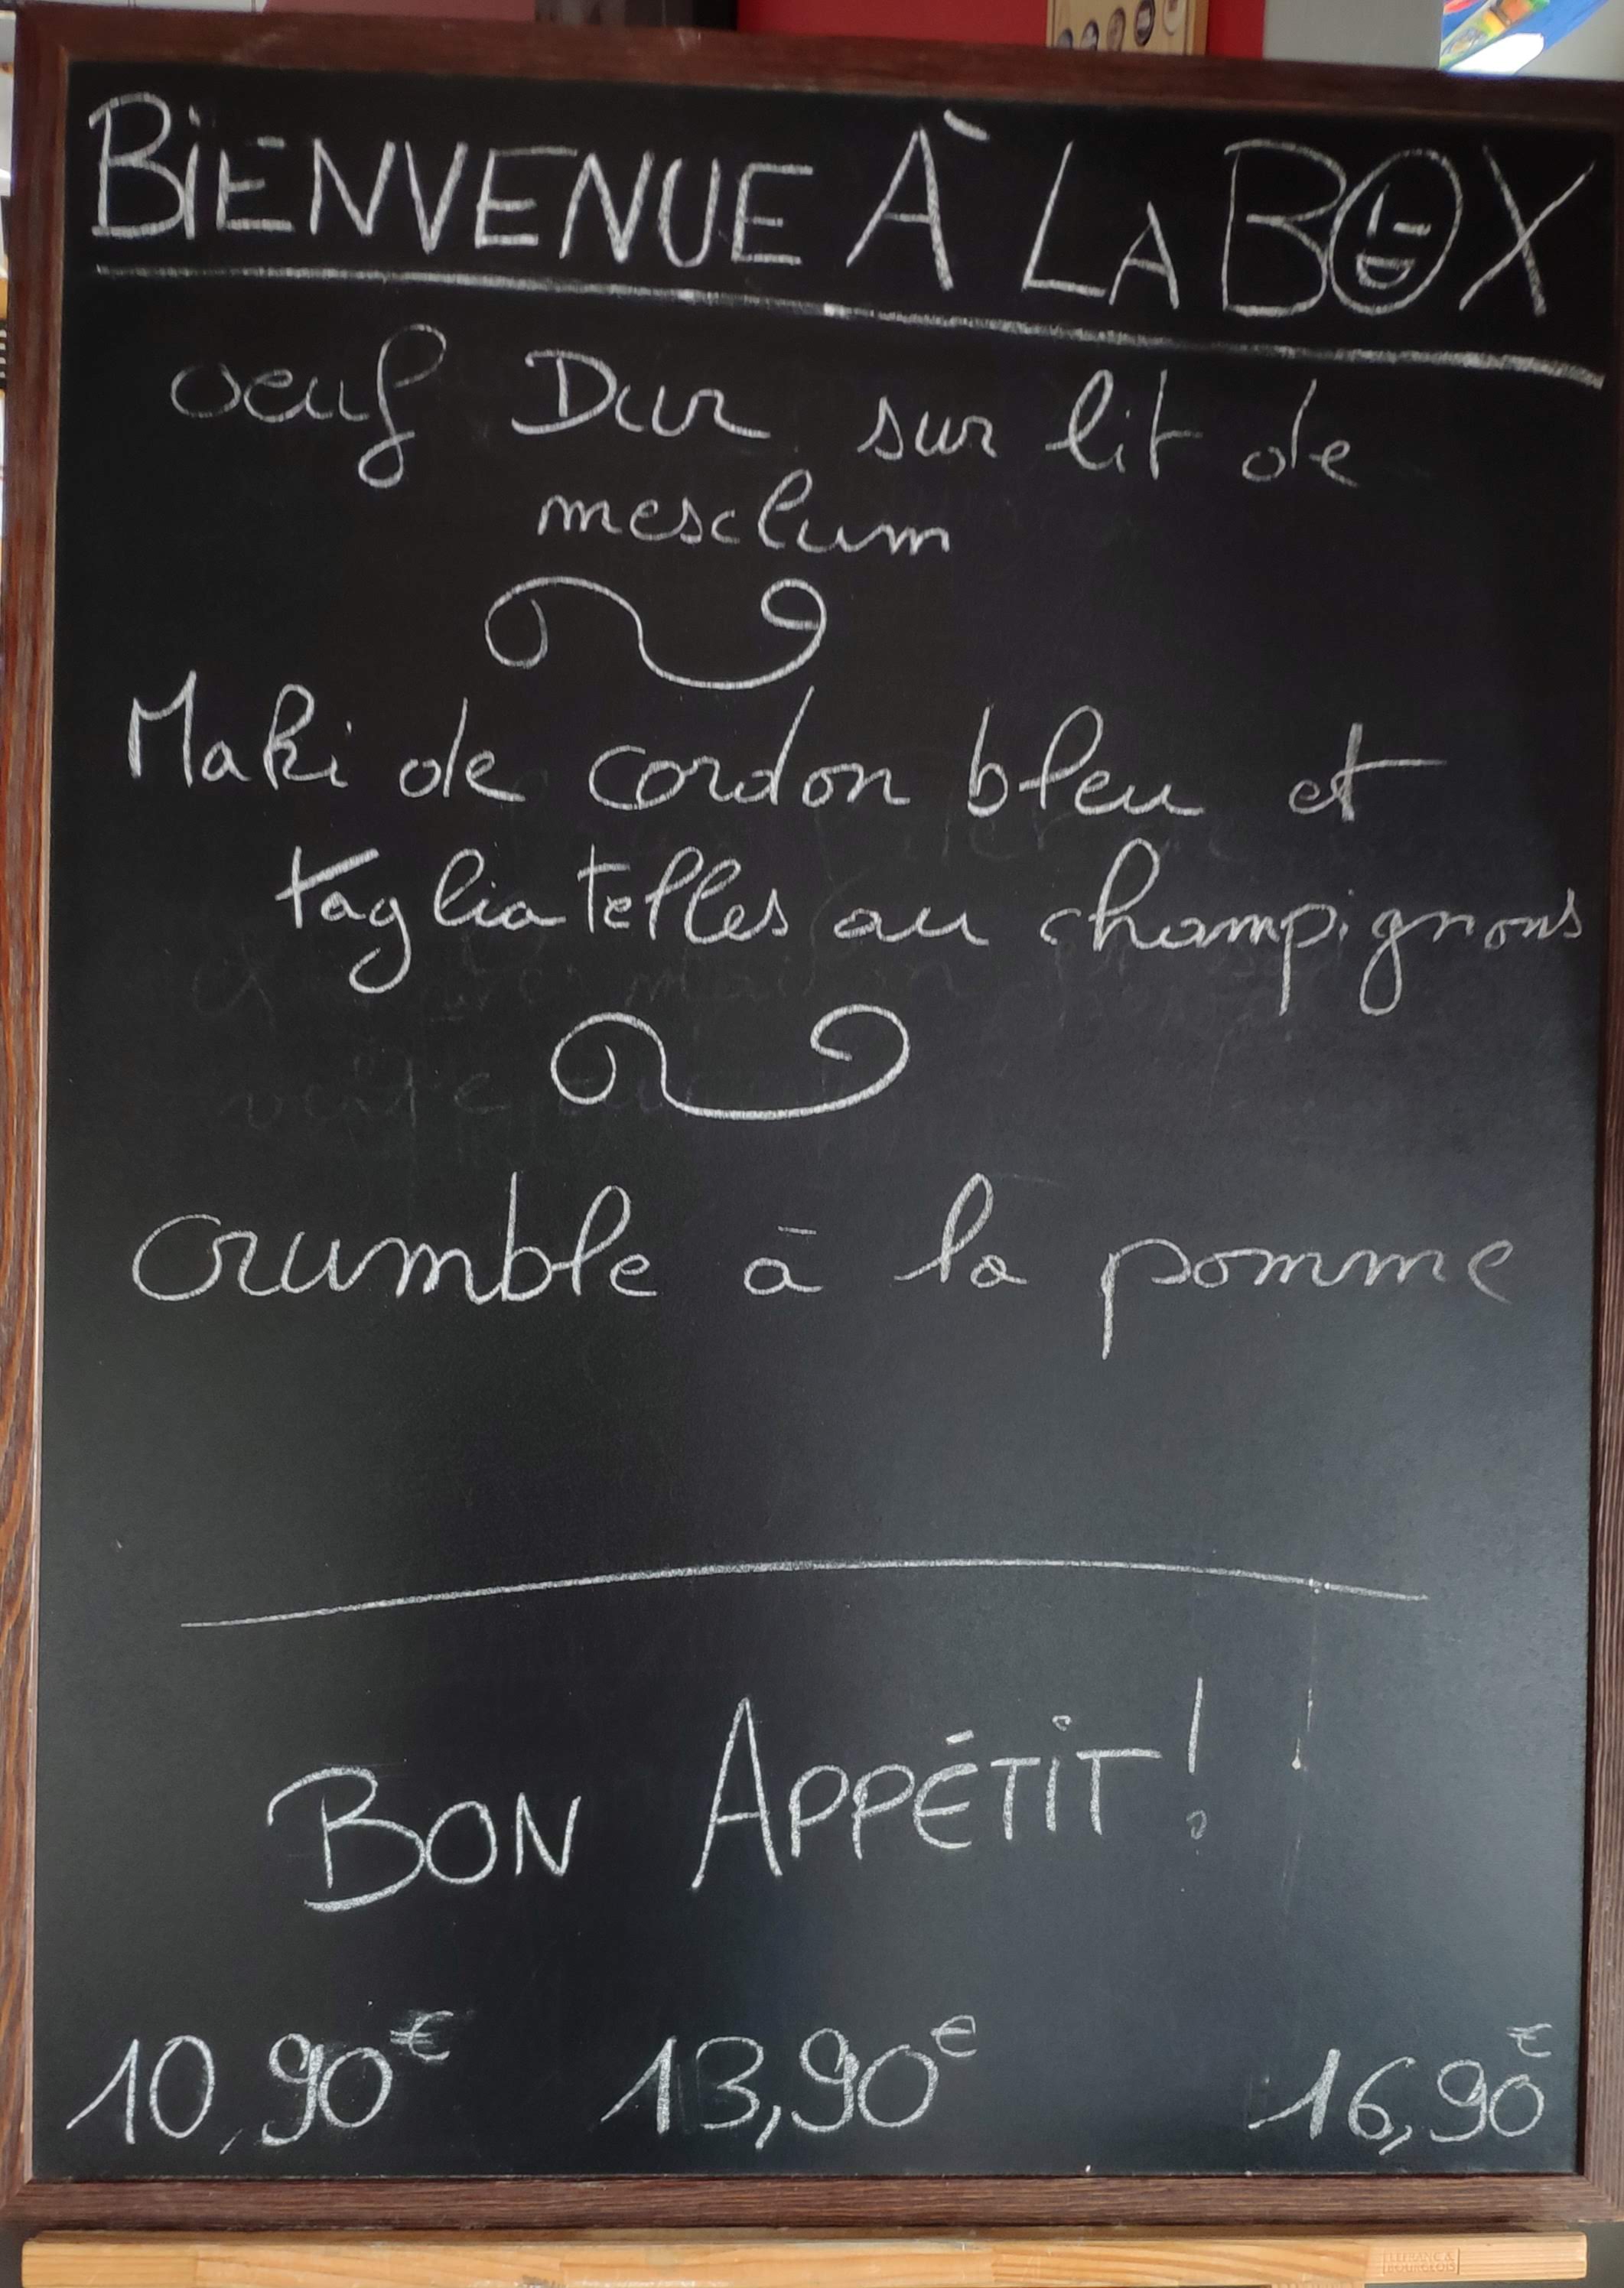 BIENVENUE À LA BOX
oeuf Dur sur lit de
mesclum
Maki de cordon bleu et
tagliatelles au champignons
crumble à la pomme
BON APPÉTIT !
10,90€ 13,90€ 16,90€
LEFRANC &
BOURGEOIS